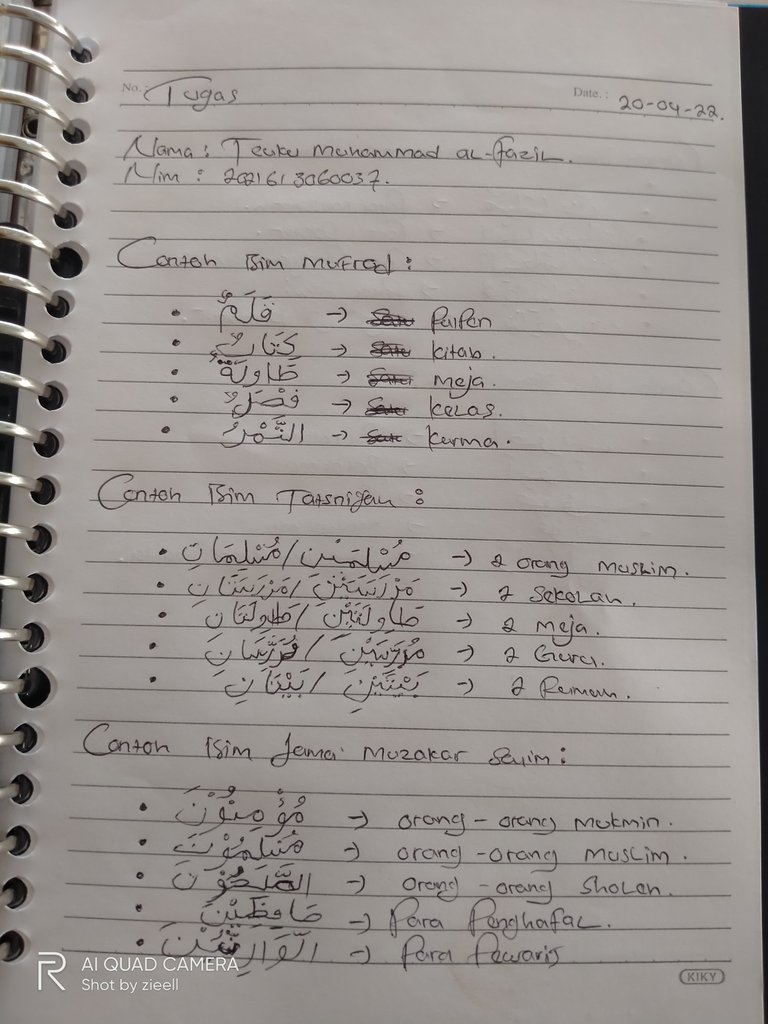 No.: Tugas Date.: 20-04-22.
Nama : Teuku Muhammad al-fazil.
Nim : 2021613060037.
Contoh Isim Mufrad :
• قَلَمٌ → Pulpen
• كِتَابٌ → kitab.
• طَاوِلَةٌ → meja.
• فَصْلٌ → kelas.
• التَّمْرُ → kurma.
Contoh Isim Tatsniyah :
• مُسْلِمَيْنِ/مُسْلِمَانِ → 2 orang muslim.
• مَدْرَسَتَيْنِ/مَدْرَسَتَانِ → 2 Sekolah.
• طَاوِلَتَيْنِ/طَاوِلَتَانِ → 2 meja.
• → 2 Guru.
• بَيْتَيْنِ/بَيْتَانِ → 2 Rumah.
Contoh Isim Jama' Muzakar Salim :
• مُؤْمِنُوْنَ → orang-orang mukmin.
• مُسْلِمُوْنَ → orang-orang muslim.
• الصَّلِحُوْنَ → orang-orang Sholeh.
• حَافِظِيْنَ → Para Penghafal.
• الْوَارِثِيْنَ → Para Pewaris
AI QUAD CAMERA
Shot by zieell
KIKY